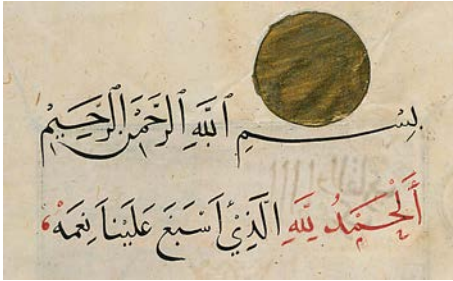 بِسْمِ ٱللَّهِ ٱلرَّحْمَٰنِ ٱلرَّحِيْمِ
أَلْحَمْدُ لِلَّهِ الَّذِيْ أَسْبَغَ عَلَيْنَا نِعَمَهْ